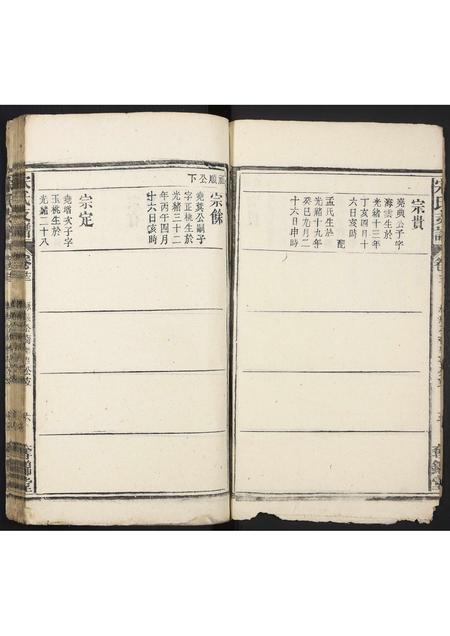 宋氏支譜
宗貴
堯典公子字
海雲生於
光緒十三年
丁亥四月十
六日亥時
配
孟氏生於
光緒十九年
癸巳九月二
十六日申時
奪錦堂
順公下
宗餘
堯蓂公嗣子
字正桃生於
光緒三十二
年丙午四月
廿六日亥時
宗定
堯增次子字
玉桃生於
光緒二十八
奪錦堂